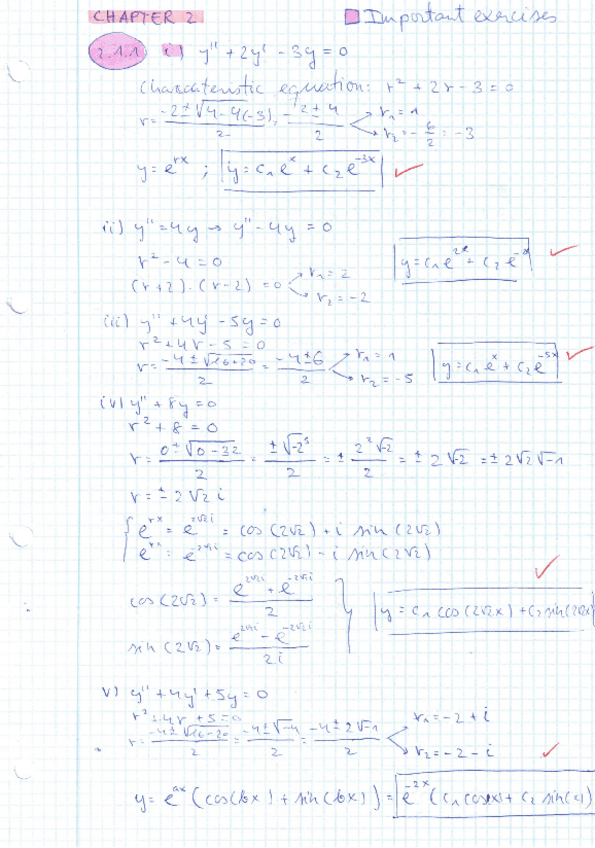 CHAPTER 2
Important exercises
2.1.1 i) y'' + 2y' - 3y = 0
Characteristic equation: r² + 2r - 3 = 0
r = (-2 ± √(4-4(-3)))/2, (-2 ± 4)/2 → r₁ = 1
→ r₂ = -6/2 = -3
y = e^(rx) ; y = c₁e^x + c₂e^(-3x) ✓
ii) y'' = 4y → y'' - 4y = 0
r² - 4 = 0
(r+2)·(r-2) = 0 → r₁ = 2
→ r₂ = -2
y = c₁e^(2x) + c₂e^(-2x) ✓
iii) y'' + 4y' - 5y = 0
r² + 4r - 5 = 0
r = (-4 ± √(16+20))/2 = (-4 ± 6)/2 → r₁ = 1
→ r₂ = -5
y = c₁e^x + c₂e^(-5x) ✓
iv) y'' + 8y = 0
r² + 8 = 0
r = (0 ± √(0-32))/2 = (± √(-2⁵))/2 = ± (2²√-2)/2 = ± 2√-2 = ± 2√2 √-1
r = ± 2√2 i
e^(rx) = e^(2√2i) = cos(2√2) + i sin(2√2)
e^(rx) = e^(-2√2i) = cos(2√2) - i sin(2√2)
cos(2√2) = (e^(2√2i) + e^(-2√2i))/2
y = c₁ cos(2√2x) + c₂ sin(2√2x) ✓
sin(2√2) = (e^(2√2i) - e^(-2√2i))/2i
v) y'' + 4y' + 5y = 0
r² + 4r + 5 = 0
r = (-4 ± √(16-20))/2 = (-4 ± √-4)/2 = (-4 ± 2√-1)/2 → r₁ = -2 + i
→ r₂ = -2 - i ✓
y = e^(ax) (cos(bx) + sin(bx)) = e^(-2x) (c₁ cos(x) + c₂ sin(x))